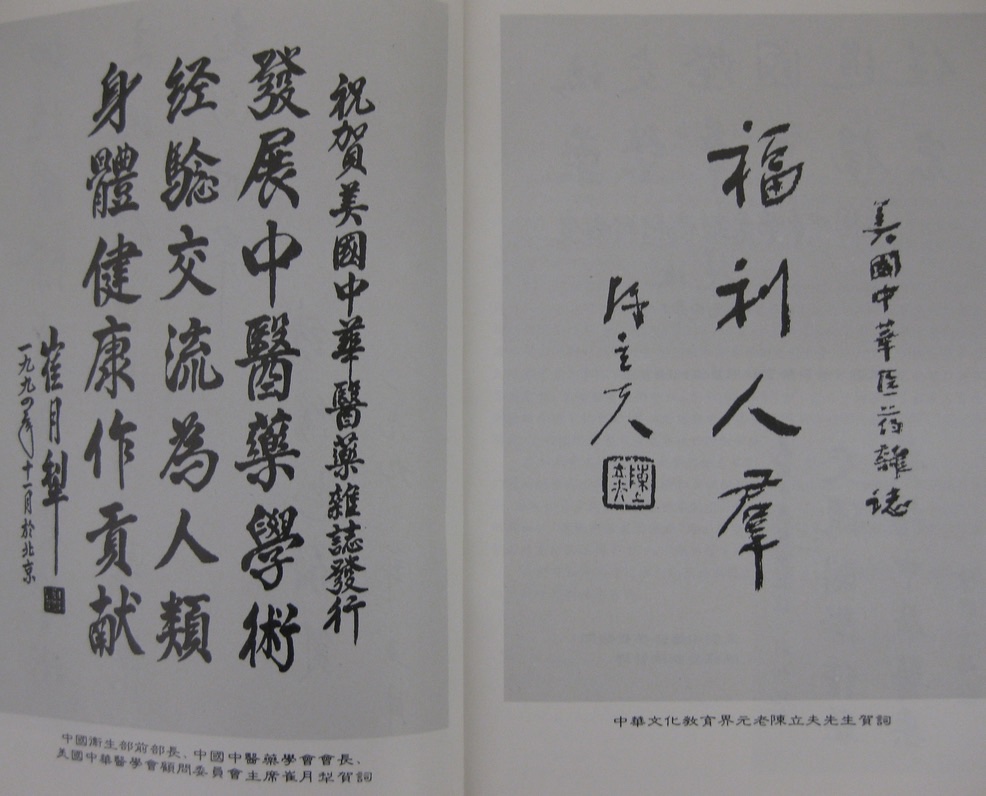 祝賀美國中華醫藥雜誌發行
發展中醫藥學術
经驗交流為人類
身體健康作貢献
崔月犁
一九九四年十一月於北京
中國衛生部前部長、中國中醫藥學會會長、
美國中華醫學會顧問委員會主席崔月犁賀詞
美國中華医药雜誌
福利人羣
陳立夫
陳立夫
中華文化教育界元老陳立夫先生賀詞